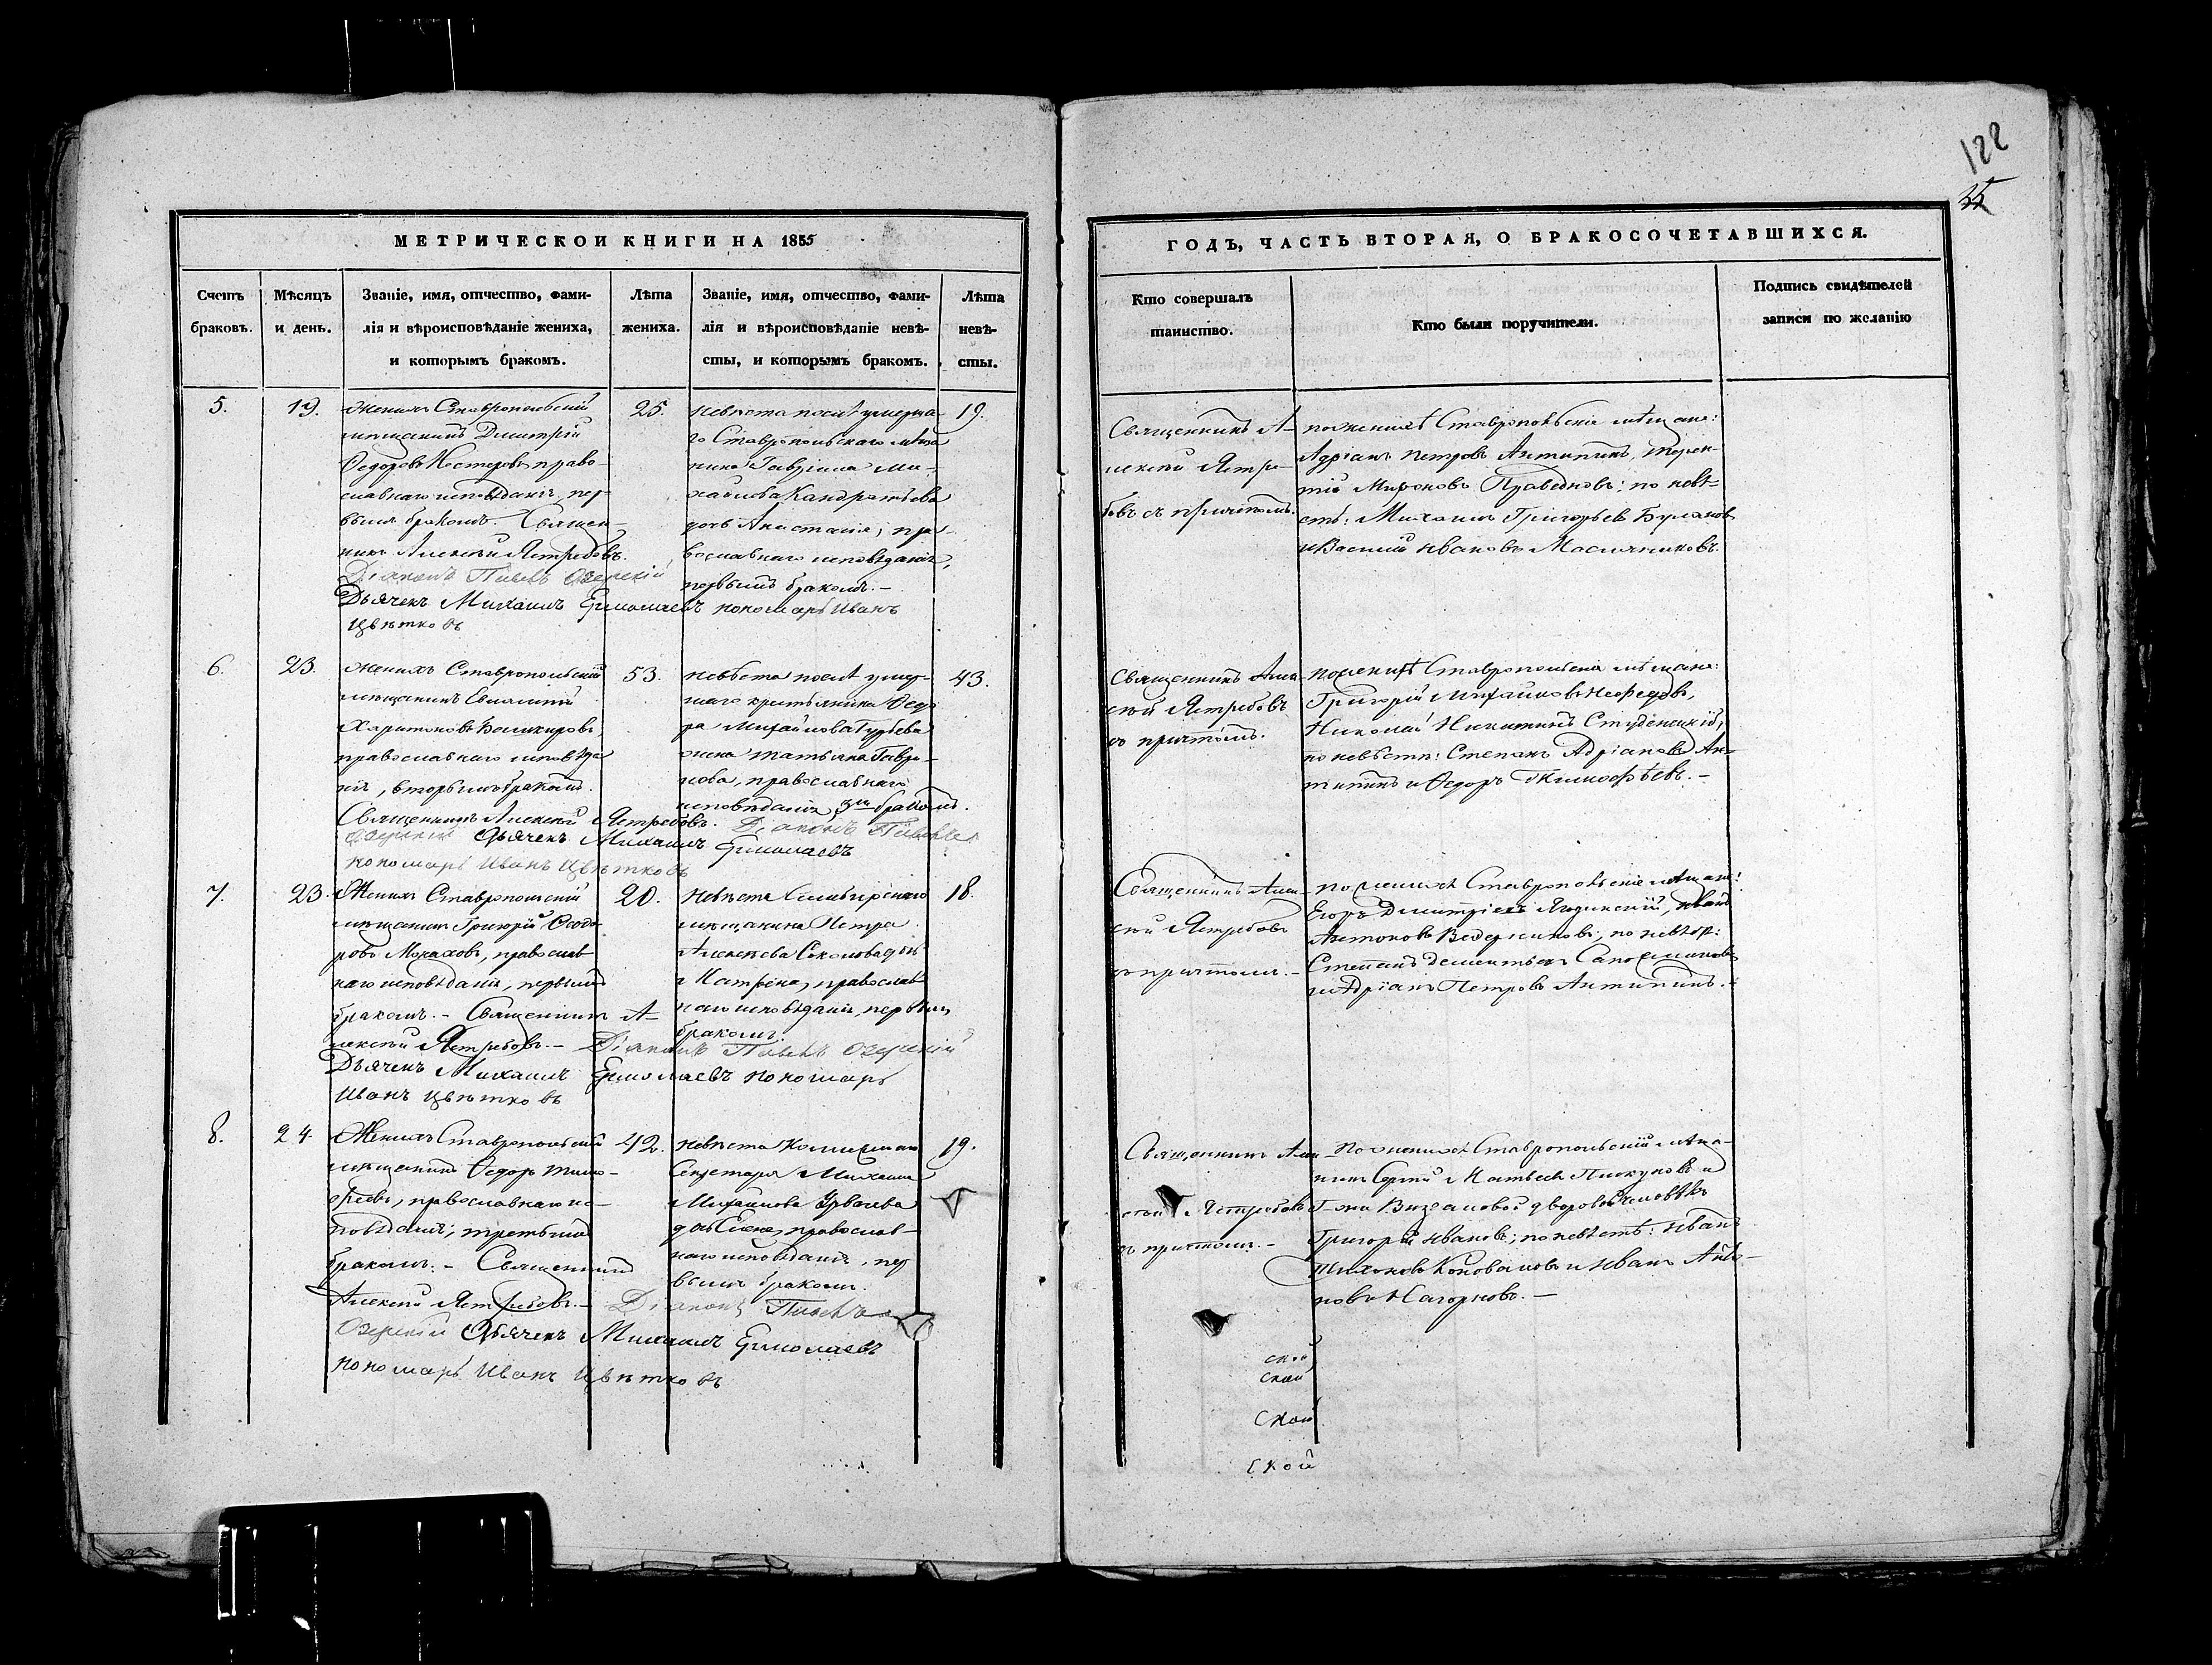 122
35
МЕТРИЧЕСКОЙ КНИГИ НА 1855
ГОДЪ, ЧАСТЬ ВТОРАЯ, О БРАКОСОЧЕТАВШИХСЯ.
Счетъ браковъ.
Мѣсяцъ и день.
Званіе, имя, отчество, фами-
лія и вѣроисповѣданіе жениха,
и которымъ бракомъ.
Лѣта жениха.
Званіе, имя, отчество, фами-
лія и вѣроисповѣданіе невѣ-
сты, и которымъ бракомъ.
Лѣта невѣ-
сты.
Кто совершалъ
таинство.
Кто были поручители.
Подпись свидѣтелей
записи по желанію
5.
19.
Женихъ Ставропольскій
мѣщанинъ Димитрій
Ѳедоровъ Нестеровъ право-
славнаго исповѣданія, пер-
вымъ бракомъ. Священ-
никъ Алексѣй Ястребовъ.
Діаконъ Павелъ Озерскій
Дьячекъ Михаилъ Ермолаевъ пономарь Иванъ
Цвѣтковъ
25.
невѣста послѣ умерша-
го Ставропольскаго мѣща
нина Гавріила Ми-
хайлова Кандратьева
дочь Анастасія, пра-
вославнаго исповѣданія,
первымъ бракомъ.-
19.
Священникъ А-
лексѣй Ястре-
бовъ съ причтомъ.
по женихѣ Ставропольскіе мѣщане:
Адріанъ Петровъ Антипинъ, Терен-
тій Мироновъ Праведновъ; по невѣ-
стѣ: Михаилъ Григорьевъ Булановъ
и Василій Ивановъ Маслениковъ.
6.
23.
женихъ Ставропольскій
мѣщанинъ Евсигній
Харитоновъ Башкировъ,
православнаго исповѣда
нія, вторымъ бракомъ.
Священникъ Алексѣй Ястребовъ. Діаконъ Павелъ
Озерскій Дьячекъ Михаилъ Ермолаевъ
пономарь Иванъ Цвѣтковъ
53.
невѣста послѣ умер-
шаго крестьянина Ѳедо
ра Михайлова Гурьева
жена Татьяна Гаври-
лова, православнаго
исповѣданія 3мъ бракомъ.
43.
Священникъ Але-
ксѣй Ястребовъ
съ причтомъ.
по женихѣ Ставропольскіе мѣщане:
Григорій Михайловъ Нефедовъ,
Николай Никитинъ Студенскій;
по невѣстѣ: Степанъ Адріановъ Ан-
типинъ и Ѳедоръ Тимофѣевъ.-
7.
23.
Женихъ Ставропольскій
мѣщанинъ Григорій Ѳеодо
ровъ Монаховъ, православ
наго исповѣданія, первымъ
бракомъ.- Священникъ А-
лексѣй Ястребовъ.- Діаконъ Павелъ Озерскій
Дьячекъ Михаилъ Ермолаевъ пономарь
Иванъ Цвѣтковъ
20.
Невѣста Симбирскаго
мѣщанина Петра
Алексѣева Соколова дочь
Матрена, православ
наго исповѣданія, первымъ
бракомъ.
18.
Священникъ Але-
ксѣй Ястребовъ
съ причтомъ.-
по женихѣ Ставропольскіе мѣщане:
Егоръ Димитріевъ Ягодинскій, Иванъ
Антоновъ Ведерниковъ; по невѣстѣ:
Степанъ Дементьевъ Сапожниковъ
и Адріанъ Петровъ Антипинъ.-
8.
24.
Женихъ Ставропольскій
мѣщанинъ Ѳедоръ Тимо-
фѣевъ, православнаго ис-
повѣданія, третьимъ
бракомъ.- Священникъ
Алексѣй Ястребовъ.- Діаконъ Павелъ
Озерскій Дьячекъ Михаилъ Ермолаевъ
пономарь Иванъ Цвѣтковъ
42.
невѣста Коллежскаго
Секретаря Михаила
Михайлова
дочь Елена, православ-
наго исповѣданія, пер
вымъ бракомъ.
19.
Священникъ Але-
ксѣй Ястребовъ
съ причтомъ.-
По женихѣ Ставропольскій мѣща-
нинъ Сергѣй Матвеевъ Пискуновъ и
Г-жи дворовый человѣкъ
Григорій Ивановъ; по невѣстѣ: Иванъ
Тихоновъ Коноваловъ и Иванъ
новъ Нагорновъ.-
ской
ской
ской
ской